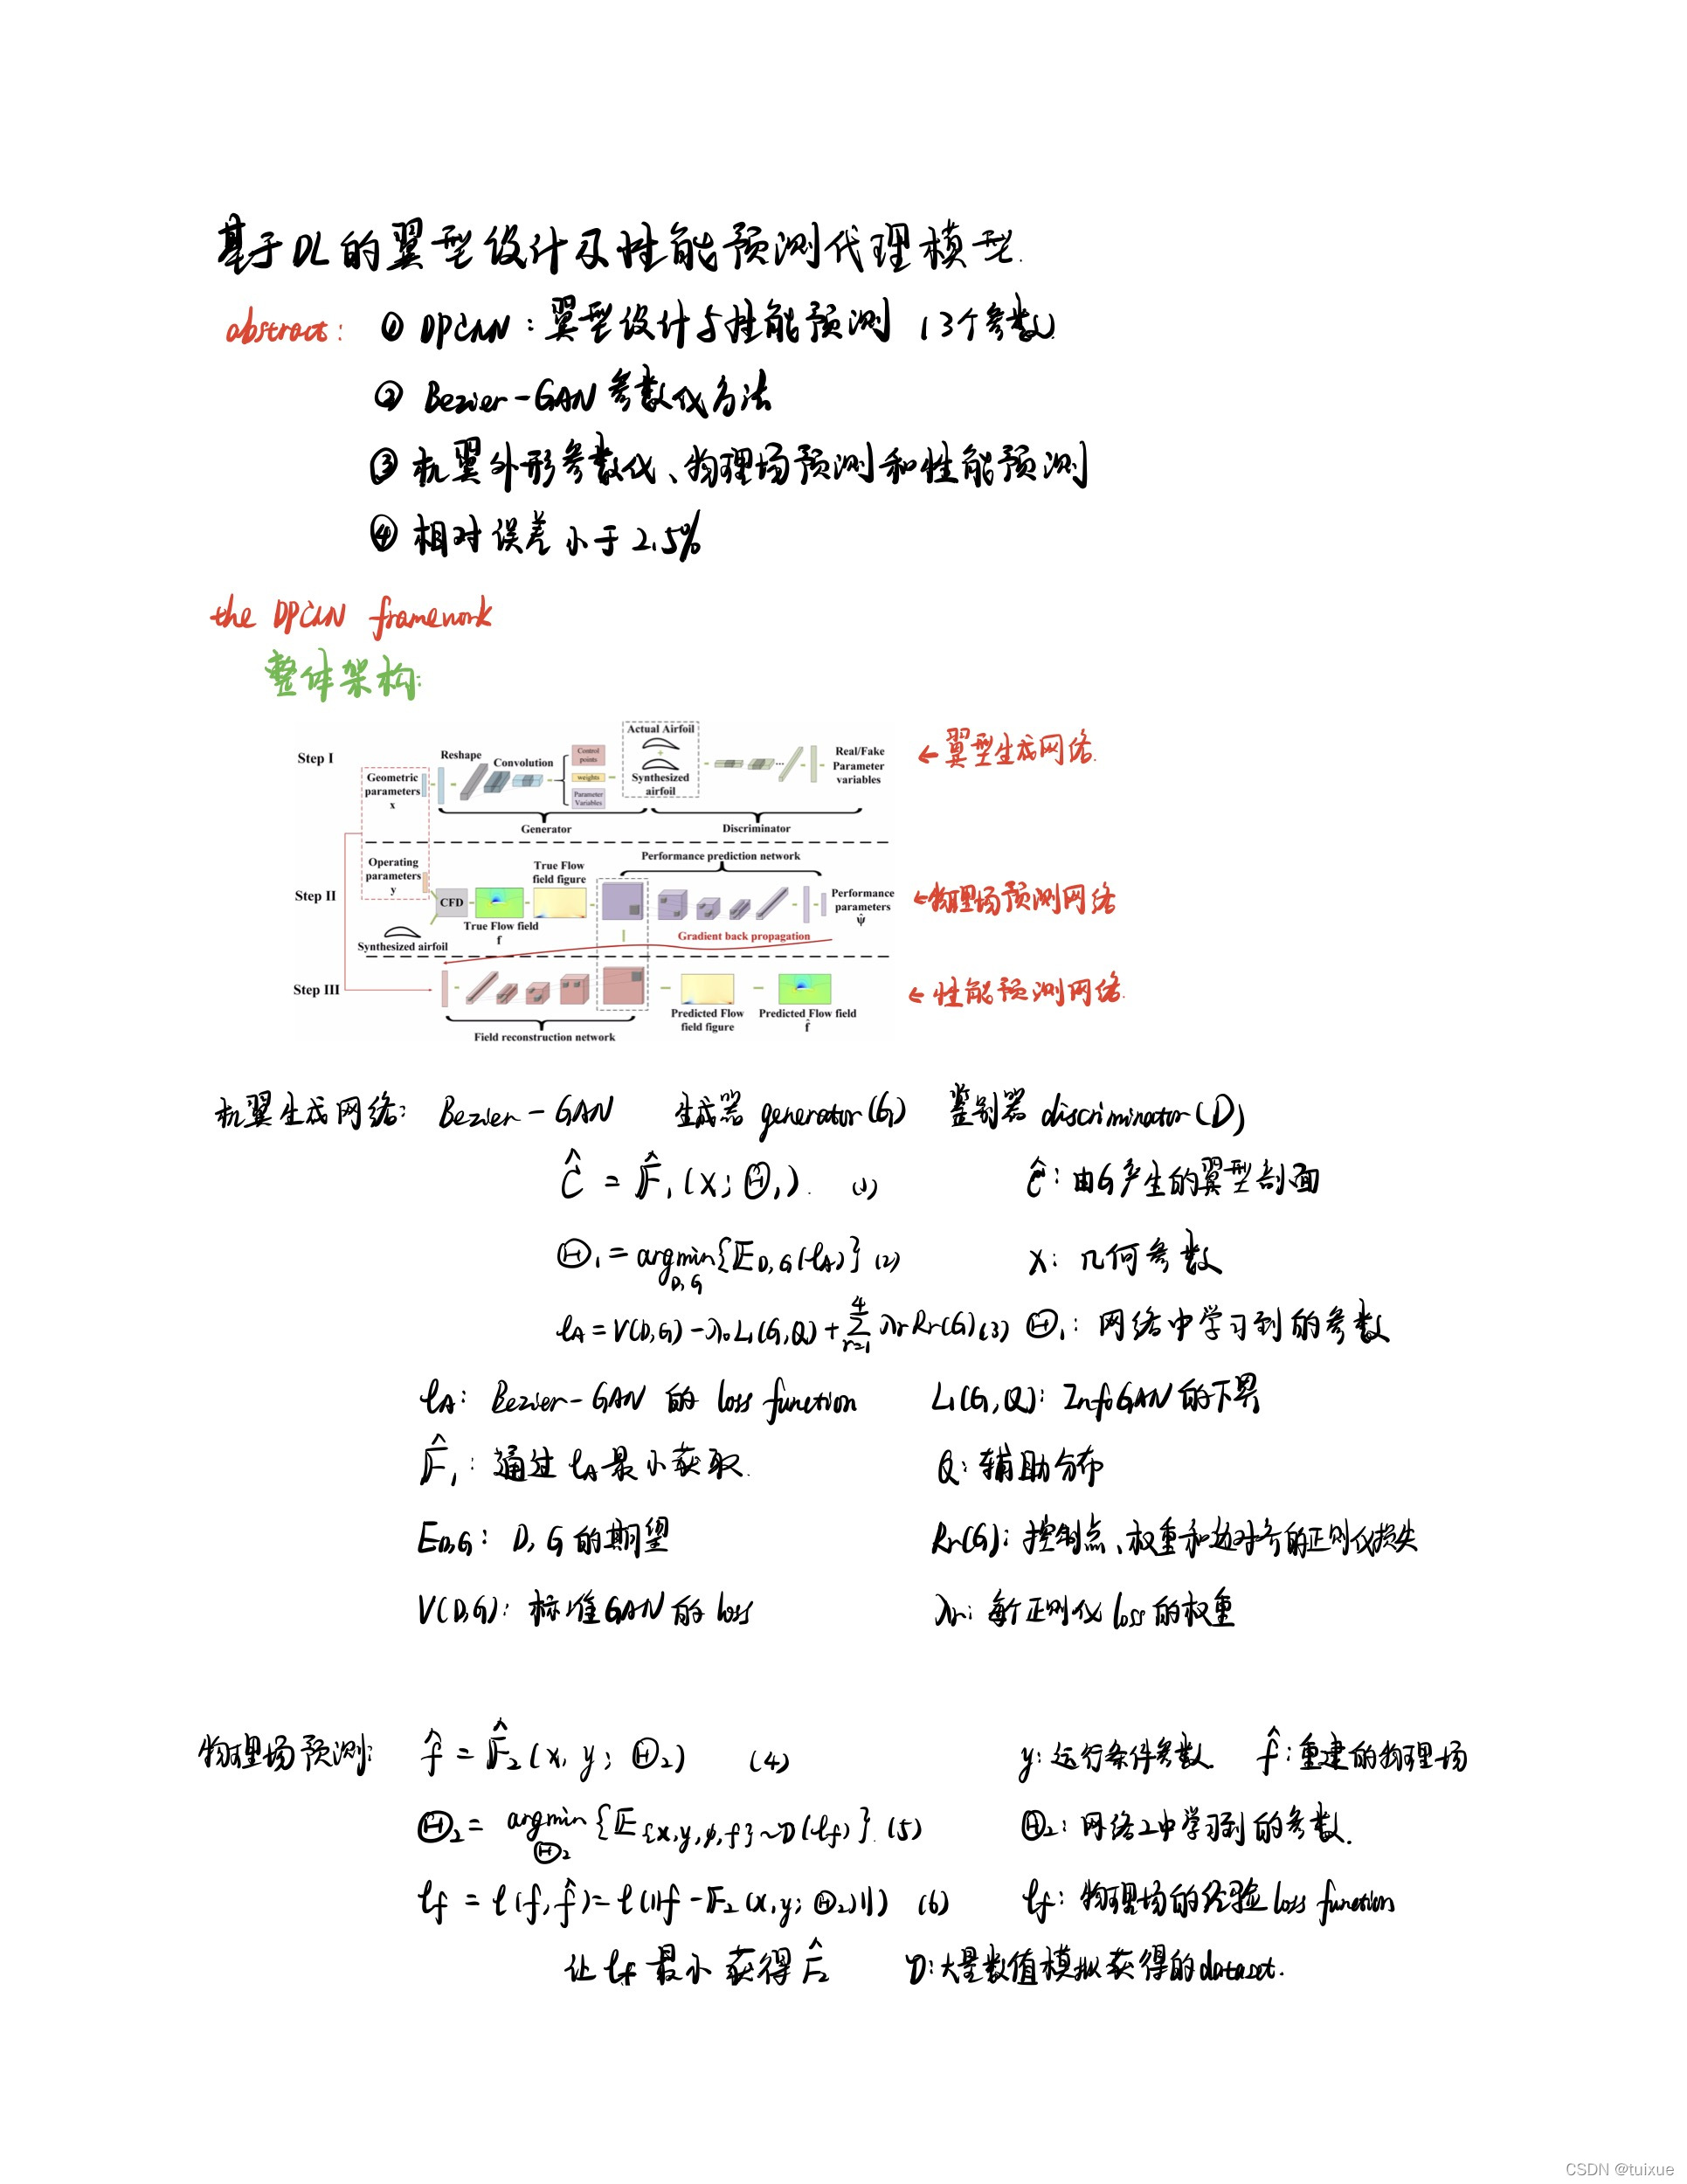 基于DL的翼型设计及性能预测代理模型.
abstract: ① DPCNN: 翼型设计与性能预测 (3个参数)
② Bezier-GAN 参数化方法
③ 机翼外形参数化、物理场预测和性能预测
④ 相对误差小于2.5%
the DPCNN framework
整体架构:
Step I
Geometric parameters x
Reshape
Convolution
Control points
weights
Parameter Variables
Actual Airfoil
+
Synthesized airfoil
Real/Fake Parameter variables
Generator
Discriminator
← 翼型生成网络.
Step II
Operating parameters y
Synthesized airfoil
CFD
True Flow field f
True Flow field figure
Performance prediction network
Performance parameters ψ̂
Gradient back propagation
← 物理场预测网络
Step III
Field reconstruction network
Predicted Flow field figure
Predicted Flow field f̂
← 性能预测网络.
机翼生成网络: Bezier-GAN 生成器 generator(G) 鉴别器 discriminator(D)
Ĉ = F̂₁(x; Θ₁). (1) Ĉ: 由G产生的翼型剖面
Θ₁ = argmin D,G {E D,G(ℓA)} (2) x: 几何参数
ℓA = V(D,G) - λ₀L₁(G,Q) + Σ r=1 4 λrRr(G) (3) Θ₁: 网络中学习到的参数
ℓA: Bezier-GAN 的 loss function L₁(G,Q): InfoGAN的下界
F̂₁: 通过ℓA最小获取. Q: 辅助分布
E D,G: D, G 的期望 Rr(G): 控制点、权重和边对齐的正则化损失
V(D,G): 标准GAN的loss λr: 每个正则化loss的权重
物理场预测: f̂ = F̂₂(x, y; Θ₂) (4) y: 运行条件参数. f̂: 重建的物理场
Θ₂ = argmin Θ₂ {E {x,y,ψ,f}~D(ℓf)}. (5) Θ₂: 网络2中学习到的参数.
ℓf = ℓ(f, f̂) = ℓ(||f - F₂(x,y; Θ₂)||) (6) ℓf: 物理场的经验loss function
让ℓf最小获得F̂₂ D: 大量数值模拟获得的dataset.
CSDN @tuixue